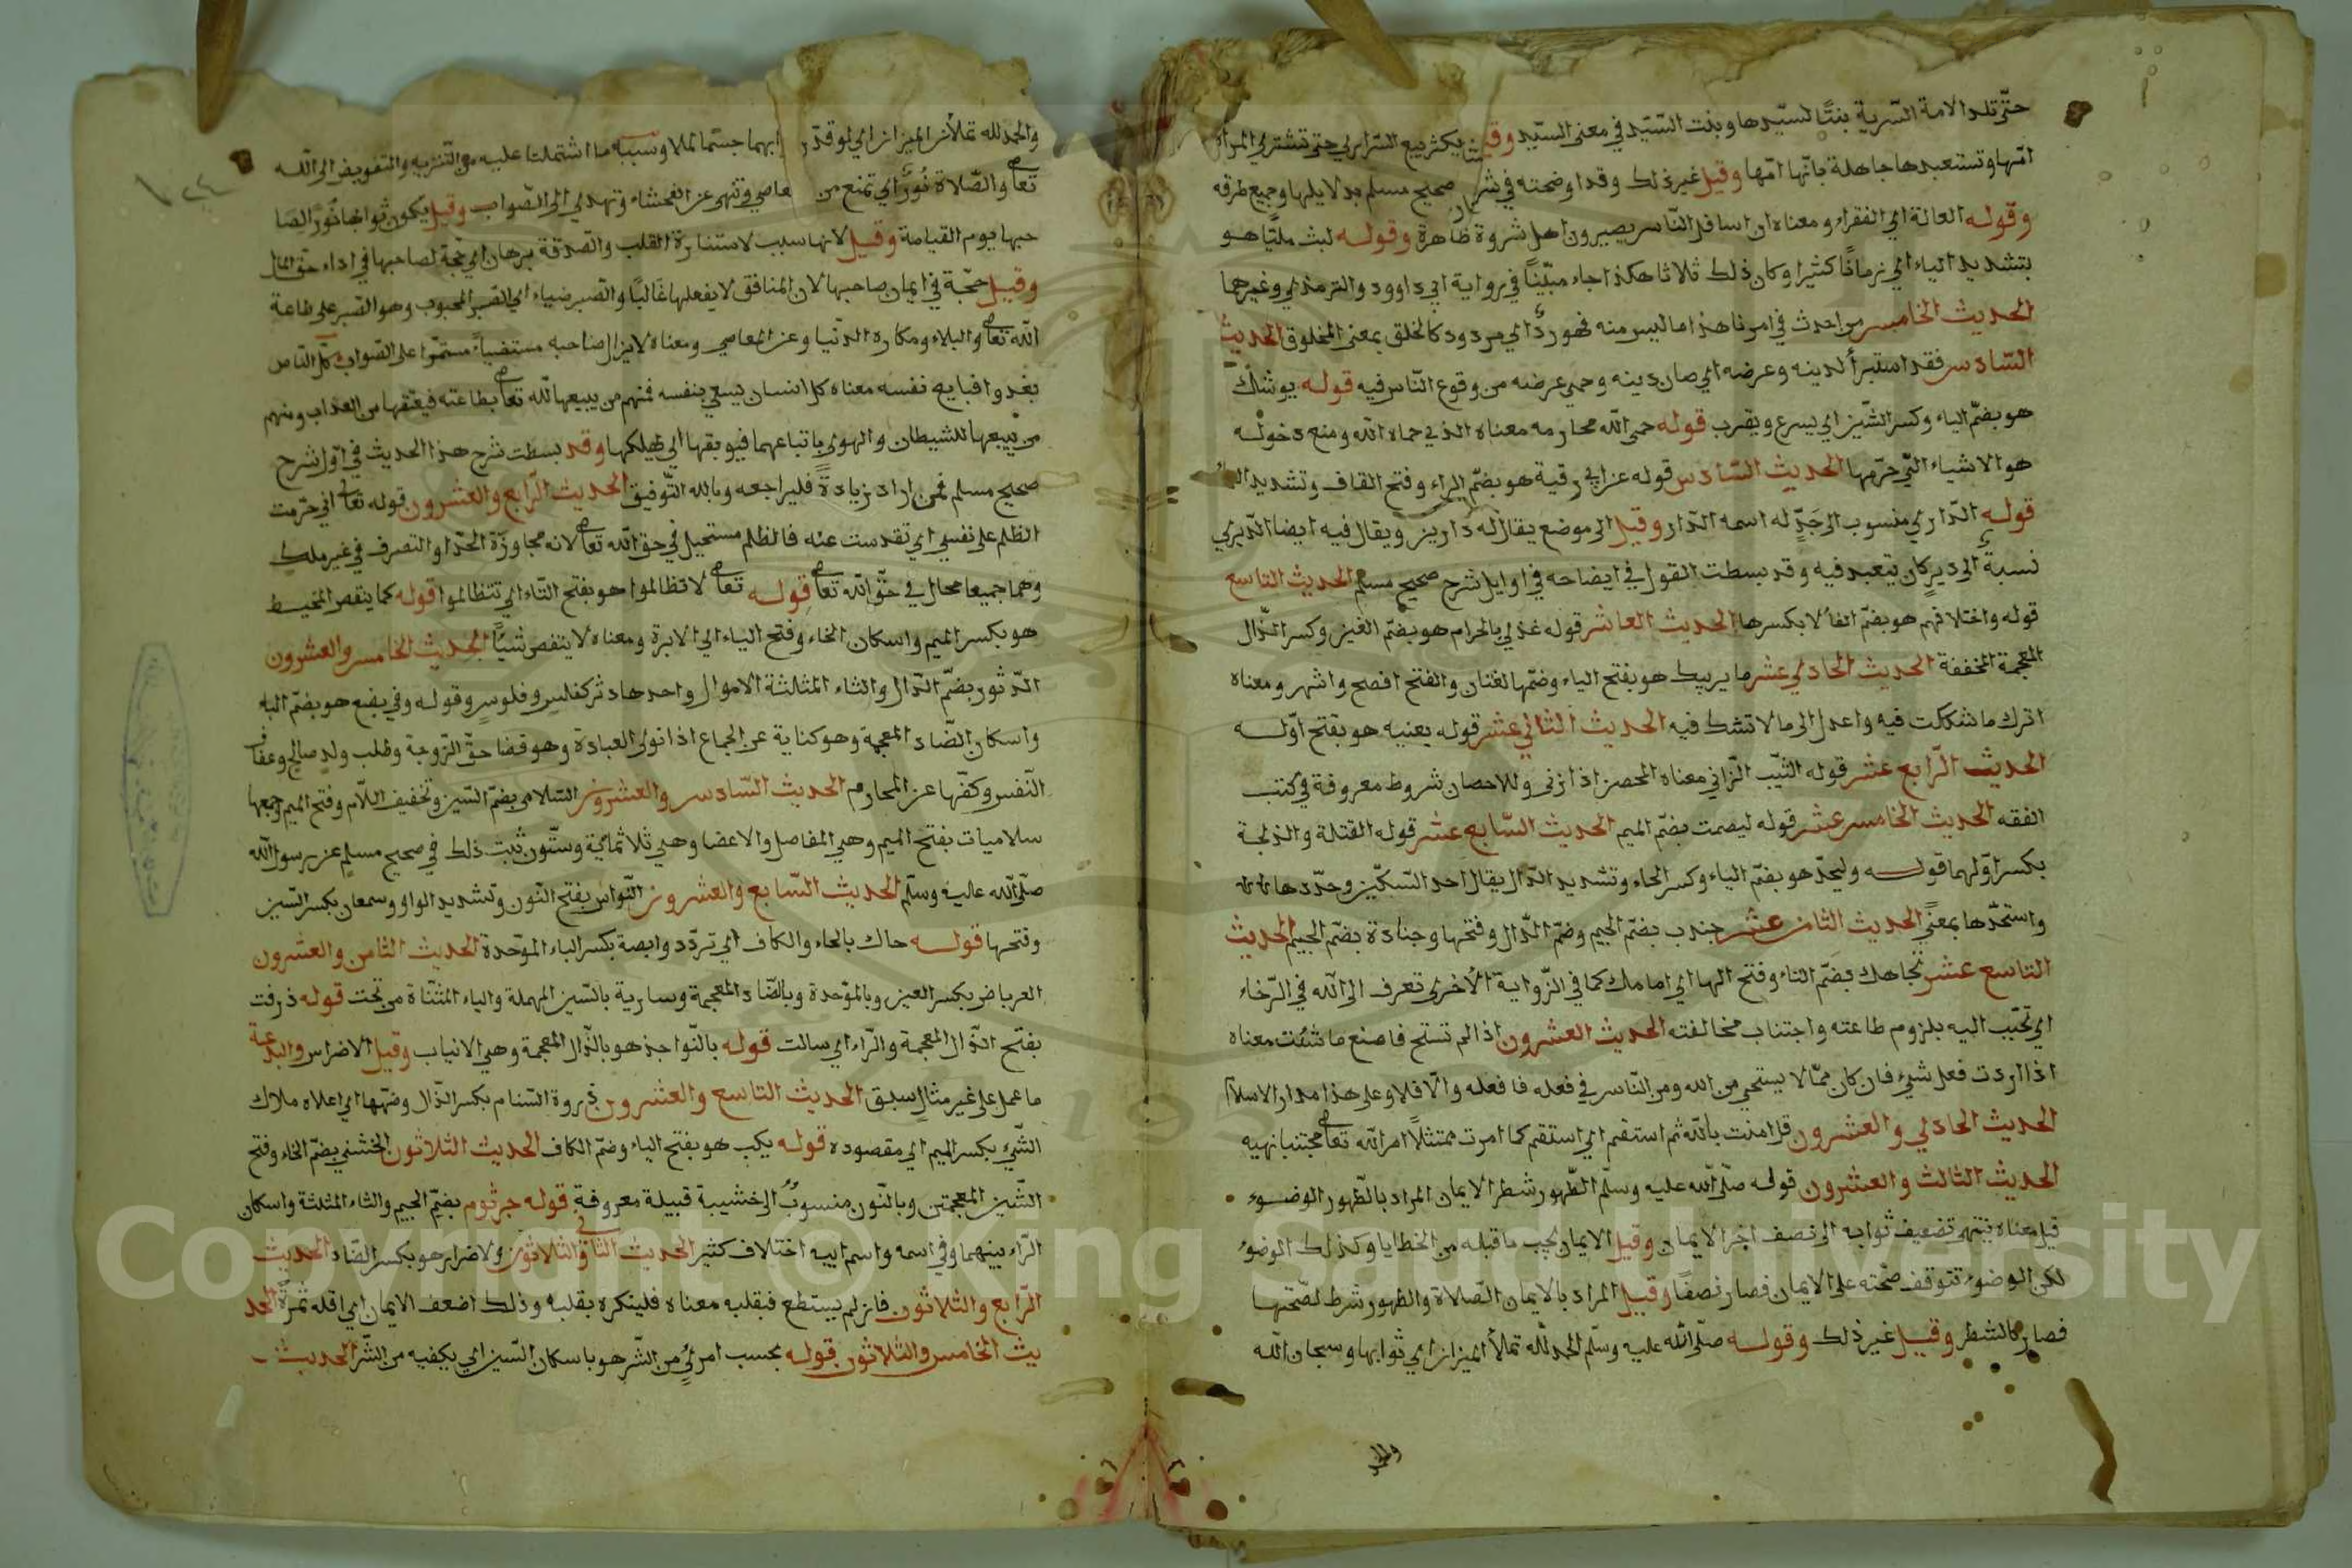 حتّى تلد الامة السّرية بنتًا لسيّدها وبنت السّيّد في معنى السيّد وقيل يكثر بيع السّراري حتى تشتري المرأة
امّها وتستعبدها جاهلة بانّها امّها وقيل غير ذلك وقد اوضحته في شرح صحيح مسلم بدلايلها وجميع طرقه
وقوله العالة اي الفقراء ومعناه ان اسافل النّاس يصيرون اهل ثروة ظاهرة وقوله لبث مليًّا هو
بتشديد الياء اي زمانًا كثيرا وكان ذلك ثلاثا هكذا جاء مبيّنًا في رواية ابي داوود والترمذي وغيرها
الحديث الخامس من احدث في امرنا هذا ما ليس منه فهو ردٌّ اي مردود كالخلق بمعنى المخلوق الحديث
السّادس فقد استبرأ لدينه وعرضه اي صان دينه وحمى عرضه من وقوع النّاس فيه قوله يوشك
هو بضمّ الياء وكسر الشّين اي يسرع ويقرب قوله حمى الله محارمه معناه الذي حماه الله ومنع دخوله
هو الاشياء التي حرّمها الحديث السّادس قوله عن ابي رقية هو بضمّ الراء وفتح القاف وتشديد الياء
قوله الدّاري منسوب الى جَدٍّ له اسمه الدّار وقيل الى موضع يقال له دارين ويقال فيه ايضا الدّيري
نسبة الى دير كان يتعبد فيه وقد بسطت القول في ايضاحه في اوايل شرح صحيح مسلم الحديث التاسع
قوله واختلافهم هو بضمّ الفاء لا بكسرها الحديث العاشر قوله غذي بالحرام هو بضمّ الغين وكسر الذّال
المعجمة المخففة الحديث الحادي عشر ما يريبك هو بفتح الياء وضمّها لغتان والفتح افصح واشهر ومعناه
اترك ما شككت فيه واعدل الى ما لا تشك فيه الحديث الثاني عشر قوله يعنيه هو بفتح اوّله
الحديث الرّابع عشر قوله الثيّب الزّاني معناه المحصن اذا زنى وللاحصان شروط معروفة في كتب
الفقه الحديث الخامس عشر قوله ليصمت بضمّ الميم الحديث السّابع عشر قوله القتلة والذبحة
بكسر اوّلهما قوله وليحدّ هو بضمّ الياء وكسر الحاء وتشديد الدّال يقال احد السّكّين وحدّدها
واستحدّها بمعنًى الحديث الثامن عشر جندب بضمّ الجيم وضمّ الدّال وفتحها وجنادة بضمّ الجيم الحديث
التاسع عشر تجاهك بضمّ التاء وفتح الها اي امامك كما في الرّواية الاخرى تعرف الى الله في الرّخاء
اي تحبّب اليه بلزوم طاعته واجتناب مخالفته الحديث العشرون اذا لم تستح فاصنع ما شئت معناه
اذا اردت فعل شيء فان كان ممّا لا يستحي من الله ومن النّاس في فعله فافعله والّا فلا وعلى هذا مدار الاسلام
الحديث الحادي والعشرون قل امنت بالله ثم استقم اي استقم كما امرت ممتثلًا امر الله تعالى مجتنبا نهيه
الحديث الثالث والعشرون قوله صلّى الله عليه وسلّم الطّهور شطر الايمان المراد بالطّهور الوضوء
قيل معناه ينتهي تضعيف ثوابه الى نصف اجر الايمان وقيل الايمان يجب ما قبله من الخطايا وكذلك الوضوء
لكن الوضوء تتوقف صحّته على الايمان فصار نصفًا وقيل المراد بالايمان الصّلاة والطهور شرط لصّحتها
فصار كالشطر وقيل غير ذلك وقوله صلّى الله عليه وسلّم الحمد لله تملأ الميزان اي ثوابها وسبحان الله
والحمد
والحمد لله تملأن الميزان اي لو قدّر ابهما جسّما لملا وسببه ما اشتملتا عليه من التّنزيه والتفويض الى الله
تعالى والصّلاة نُورٌ اي تمنع من المعاصي وتنهى عن الفحشاء وتهدي الى الصّواب وقيل يكون ثوابها نُورًا لصا
حبها يوم القيامة وقيل لانها سبب لاستنارة القلب والصّدقة برهان اي حجّة لصاحبها في اداء حقّ المال
وقيل حجّة في ايمان صاحبها لان المنافق لا يفعلها غالبًا والصّبر ضياء اي الصبر المحبوب وهو الصّبر على طاعة
الله تعالى والبلاء ومكاره الدّنيا وعن المعاصي ومعناه لا يزال صاحبه مستضياءً مستمرّا على الصّواب كل النّاس
يغدوا فبايع نفسه معناه كل انسان يسعي بنفسه فمنهم من يبيعها لله تعالى بطاعته فيعتقها من العذاب ومنهم
من يبيعها للشيطان والهوى باتباعهما فيوبقها اي يهلكها وقد بسطت شرح هذا الحديث في اوّل شرح
صحيح مسلم فمن اراد زيادةً فليراجعه وبالله التّوفيق الحديث الرّابع والعشرون قوله تعالى اني حرّمت
الظلم على نفسي اي تقدست عنه فالظلم مستحيل في حقّ الله تعالى لانه مجاوزة الحدّ او التصرف في غير ملك
وهما جميعا محال في حقّ الله تعالى قوله تعالى لا تظالموا هو بفتح التّاء اي تتظالموا قوله كما ينقص المخيط
هو بكسر الميم واسكان الخاء وفتح الياء اي الابرة ومعناه لا ينقص شيًا الحديث الخامس والعشرون
الدّثور بضمّ الدّال والثاء المثالثة الاموال واحدها دثر كفلس وفلوس وقوله وفي بضع هو بضمّ البا
واسكان الضّاد المعجمة وهو كناية عن الجماع اذا نوى العبادة وهو قضا حقّ الزّوجة وطلب ولد صالح وعفاف
النّفس وكفّها عن المحارم الحديث السّادس والعشرون السّلامى بضمّ السّين وتخفيف اللّام وفتح الميم وجمعها
سلاميات بفتح الميم وهي المفاصل والاعضا وهي ثلاثمائة وستّون ثبت ذلك في صحيح مسلم عن رسول الله
صلّى الله عليه وسلّم الحديث السّابع والعشرون النّواس بفتح النّون وتشديد الواو وسمعان بكسر السّين
وفتحها قوله حاك بالحاء والكاف اي تردّد وابصة بكسر الباء الموّحدة الحديث الثامن والعشرون
العرباض بكسر العين وبالموّحدة وبالضّاد المعجمة وسارية بالسّين المهملة والياء المثنّاة من تحت قوله ذرفت
بفتح الذّال المعجمة والرّاء اي سالت قوله بالنّواجذ هو بالذّال المعجمة وهي الانياب وقيل الاضراس والبدعة
ما عمل على غير مثال سبق الحديث التاسع والعشرون ذروة السّنام بكسر الذّال وضمّها اي اعلاه ملاك
الشّيء بكسر الميم اي مقصوده قوله يكب هو بفتح الياء وضمّ الكاف الحديث الثلاثون الخشني بضمّ الخاء وفتح
الشّين المعجمتين وبالنّون منسوبٌ الى خشيبة قبيلة معروفة قوله جرثوم بضمّ الجيم والثاء المثلثة واسكان
الرّاء بينهما وفي اسمه واسم ابيه اختلاف كثير الحديث الثاني والثلاثون ولا ضرار هو بكسر الضّاد الحديث
الرّابع والثلاثون فان لم يستطع فبقلبه معناه فلينكره بقلبه وذلك اضعف الايمان اي اقله ثمرةً الحد
يث الخامس والثلاثون قوله بحسب امرئٍ من الشّر هو باسكان السّين اي يكفيه من الشّر الحديث
Copyright © King Saud University